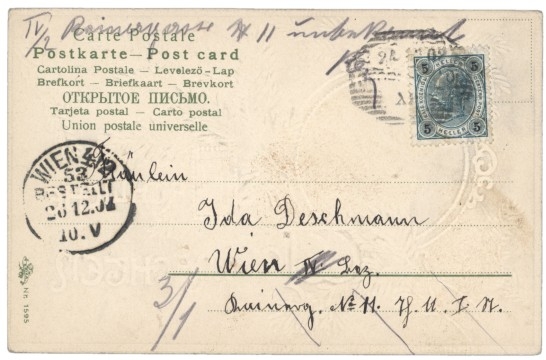 IV/2 No 11 unbekannt
Carte Postale
Postkarte — Post card
Cartolina Postale — Levelező-Lap
Brefkort — Briefkaart — Brevkort
ОТКРЫТОЕ ПИСЬМО.
Tarjeta postal — Carto postal
Union postale universelle
5 5
5 HELLER 5
WIEN
53
BESTELLT
26.12.02
10.V
Fräulein
Ida Deschmann
Wien Bez.
No 11. Th. U. I. St.
3/1
No. 1595